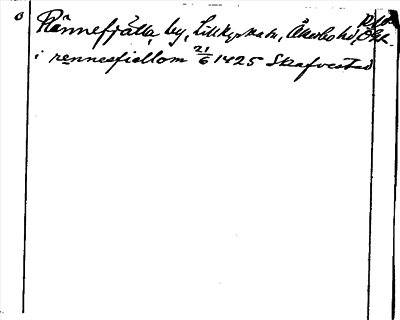 Rännefjälla, by, Lillkyrka sn, Åkerbo hd, Ög.
i rennesfiellom 21/6 1425 Skæfvestad